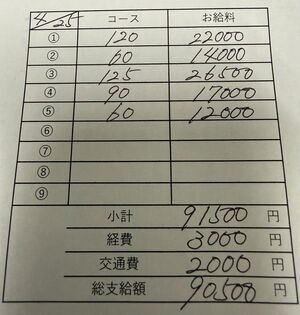 4/25 コース お給料
① 120 22000
② 60 14000
③ 125 26500
④ 90 17000
⑤ 60 12000
⑥
⑦
⑧
⑨
小計 91500 円
経費 3000 円
交通費 2000 円
総支給額 90500 円